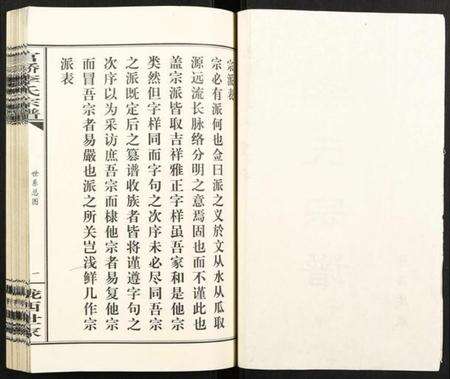 宗派表
宗必有派何也佥曰派之义於文从水从瓜取
源远流长脉络分明之意焉固也而不谨此也
盖宗派皆取吉祥雅正字样虽吾家和是他宗
类然但字样同而字句之次序未必尽同吾宗
之派既定后之篡谱收族者皆将谨遵字句之
次序以为采访庶吾宗而棣他宗者易复他宗
而冒吾宗者易嚴也派之所关岂浅鲜儿作宗
派表
官桥李氏宗谱
世系总图
一
陇西世家